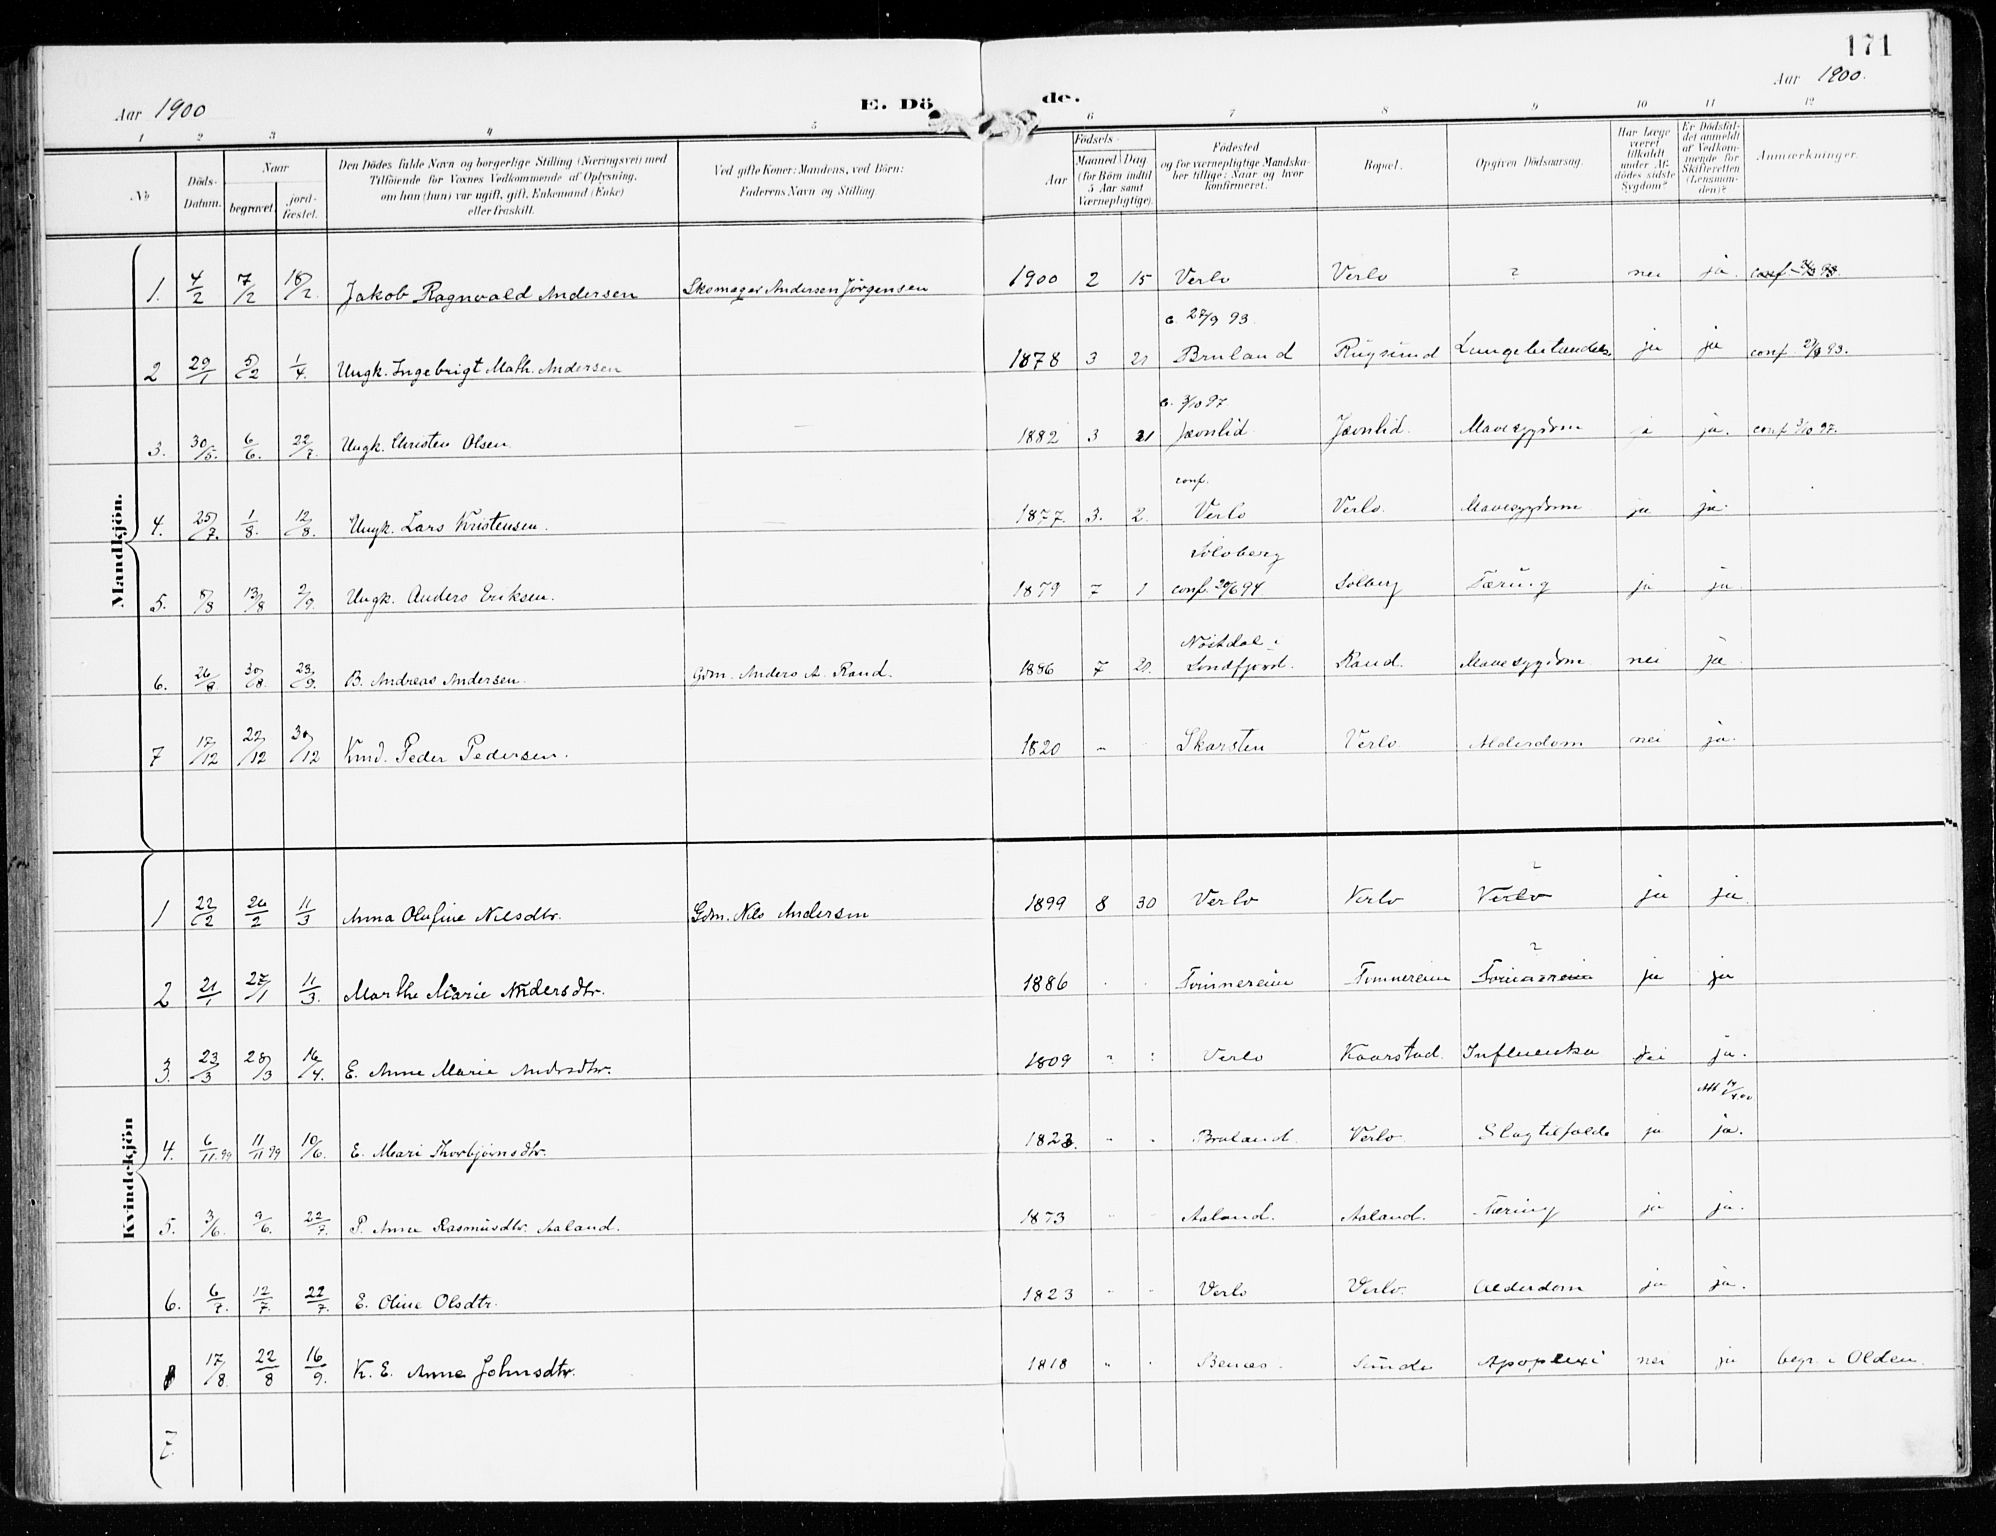 171
Aar 1900
E. Dö de.
Aar 1900.
1 2 3 4 5 6 7 8 9 10 11 12
No
Döds-Datum.
Naar
begravet.
jord-fæstet.
Den Dödes fulde Navn og borgerlige Stilling (Næringsvei) med
Tilföiende for Voxnes Vedkommende af Oplysning,
om han (hun) var ugift, gift, Enkemand (Enke)
eller fraskilt.
Ved gifte Koner: Mandens, ved Börn:
Faderens Navn og Stilling
Födsels-
Aar
Maaned Dag
(for Börn indtil
5 Aar samt
Værnepligtige).
Födested
og for værnepligtige Mandska-
ber tillige: Naar og hvor
konfirmeret.
Bopæl.
Opgiven Dödsaarsag.
Har Læge
været
tilkaldt
under Af-
dödes sidste
Sygdom?
Er Dödsfal-
det anmeldt
af Vedkom-
mende for
Skifteretten
(Lensman-
den)?
Anmærkninger.
Mandkjön.
1. 4/2 7/2 18/2 Jakob Ragnvald Andersen Skomager Andersen Jörgensen 1900 2 15 Verlo Verlo ? nei ja.
c. 27/9 93.
2 29/1 5/2 1/4. Ungk. Ingebrigt Math. Andersen 1878 3 21 Bruland Rugsund Lungebetændelse ja ja conf. 27/9 93.
c. 3/10 97
3. 30/5. 6/6. 22/7. Ungk. Christen Olsen. 1882 3 21 Jævnlid Jævnlid. Mavesygdom ja ja. conf 3/10 97.
conf.
4. 25/7. 1/8. 12/8. Ungk. Lars Kristensen. 1877. 3. 2. Verlo Verlo. Mavesygdom ja ja.
Soloberg
5. 8/8 13/8 2/9. Ungk. Anders Eriksen. 1879 7 1 conf. 20/6 94 Solberg Tæring ja ja.
Nöstdal i
6. 26/8 30/8. 23/9. B. Andreas Andersen. Gdm. Anders A. Rand. 1886 7 20. Söndfjord. Rand. Mavesygdom nei ja
7 17/12 22/12 30/12 Kmd. Peder Pedersen. 1820 " " Skarsten Verlo Alderdom nei ja.
Kvindekjön
?
1 22/2 26/2 11/3 Anna Olufine Nilsdtr. Gdm. Nils Andersen 1899 8 30 Verlo Verlo Verlo ja ja.
?
2 21/1 27/1 11/3. Marthe Marie Andersdtr. 1886 . . Tonnereim Tonnereim Tonnereim ja ja
3. 23/3 28/3 16/4. E. Anne Marie Andrsdtr. 1809 " " Verlo Kaarstad. Influentsa nei ja.
Att 14/4.00
4. 6/11.99 11/11 99 10/6. E. Mari Thorbjörnsdtr. 1823. " " Bruland. Verlo. Slagtilfælde ja ja.
5. 3/6. 9/6. 22/7. P. Anne Rasmusdtr. Aaland. 1873 " " Aaland. Aaland. Tæring ja ja.
6. 6/7. 12/7. 22/7. E. Oline Olsdtr. 1823 " " Verlo Verlo. Alderdom ja ja.
17/8. 22/8 16/9. K. E. Anne Johnsdtr. 1818 " " Benes. Sunde Apoplexi nei ja begr. i Olden.
7.